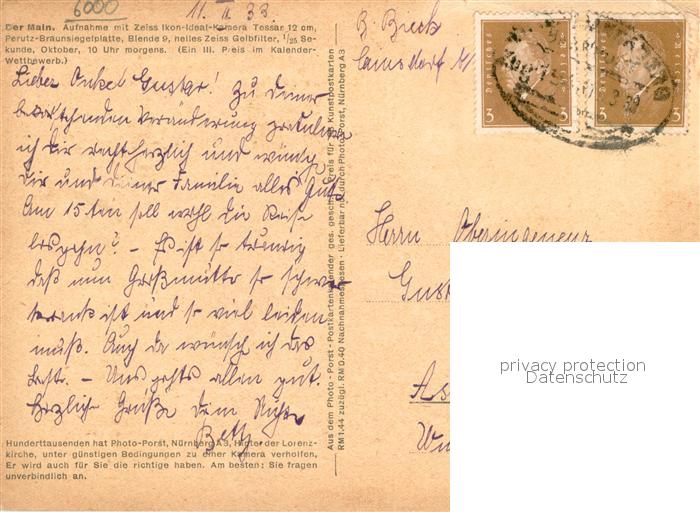 6000
11. II. 33
Der Main. Aufnahme mit Zeiss Ikon-Ideal-Kamera Tessar 12 cm,
Perutz-Braunsiegelplatte, Blende 9, helles Zeiss Gelbfilter, 1/25 Se-
kunde, Oktober, 10 Uhr morgens. (Ein III. Preis im Kalender-
Wettbewerb.)
Lieber Onkel Gustav! Zu Deiner
bevorstehenden Veränderung gratuliere
ich Dir recht herzlich und wünsche
Dir und Deiner Familie alles Gute.
Am 15ten soll wohl die Reise
losgehn? – Es ist so traurig
daß nun Großmutter so schwer
krank ist und so viel leiden
muß. Auch da wünsch ich das
Beste. – Uns gehts allen gut.
Herzliche Grüße Deine Nichte
Betty
Hunderttausenden hat Photo-Porst, Nürnberg A 3, Hinter der Lorenz-
kirche, unter günstigen Bedingungen zu einer Kamera verholfen,
Er wird auch für Sie die richtige haben. Am besten: Sie fragen
unverbindlich an.
Aus dem Photo-Porst-Postkartenkalender ges. gesch. Preis für Kunstpostkarten
RM 1.44 zuzügl. RM 0.40 Nachnahmespesen · Lieferbar nur durch Photo-Porst, Nürnberg A 3
B. Bieck
Camsdorf
Deutsches Reich
3
3
Deutsches Reich
3
3
Herrn Oberingeneur
Gust
As
privacy protection
Datenschutz